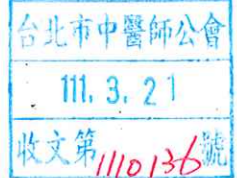 台北市中醫師公會
111. 3. 21
收文第1110136號